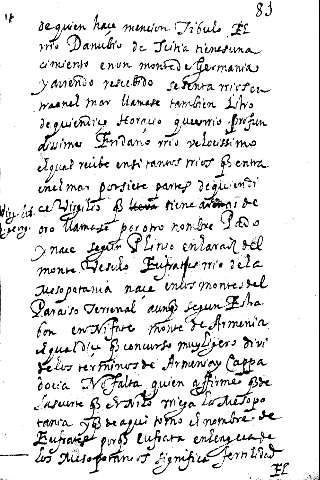 83
de quien hace mencion Tibulo. El
rrio Danubio de Scitia tiene su na
cimiento en un monte de Germania
y aviendo rescebido sesenta rrios en
tra en el mar llamase tambien Istro
de quien dice Horacio que es rrio profun
dissimo Eridano rrio velocissimo
el qual recibe en si tantos rrios q̃ entra
en el mar por siete partes de quien di
ce Virgilio q̃ tiene arenas de
oro llamase por otro nombre Pado
y nace segun Plinio en la raiz del
monte Vesulo Eufrates rrio de la
Mesopotamia nace en los montes del
Paraiso Terrenal aunq̃ segun Estra
bon en Nifate monte de Armenia
el qual dice q̃ con curso muy ligero divi
de los terminos de Armenia y Cappa
docia No falta quien affirme q̃ de
la suerte q̃ el Nilo rriega la Mesopo
tamia y q̃ de aqui tomo el nombre de
Eufrates porq̃ Eufrata en lengua de
los Mesopotamos significa fertilidad
El